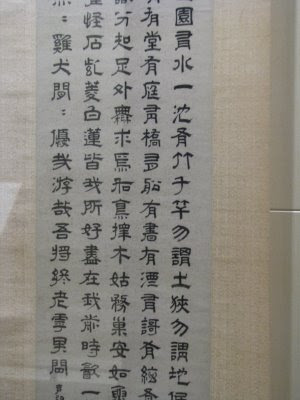 園有水一池有竹千竿勿謂土狹勿謂地偏
有堂有庭有橋有船有書有酒有歌有絃有
識分知足外無求焉如鳥擇木姑務巢安如龜
怪石紫菱白蓮皆我所好盡在我前時飲一
雞犬閒〻優哉游哉吾將終老乎其間